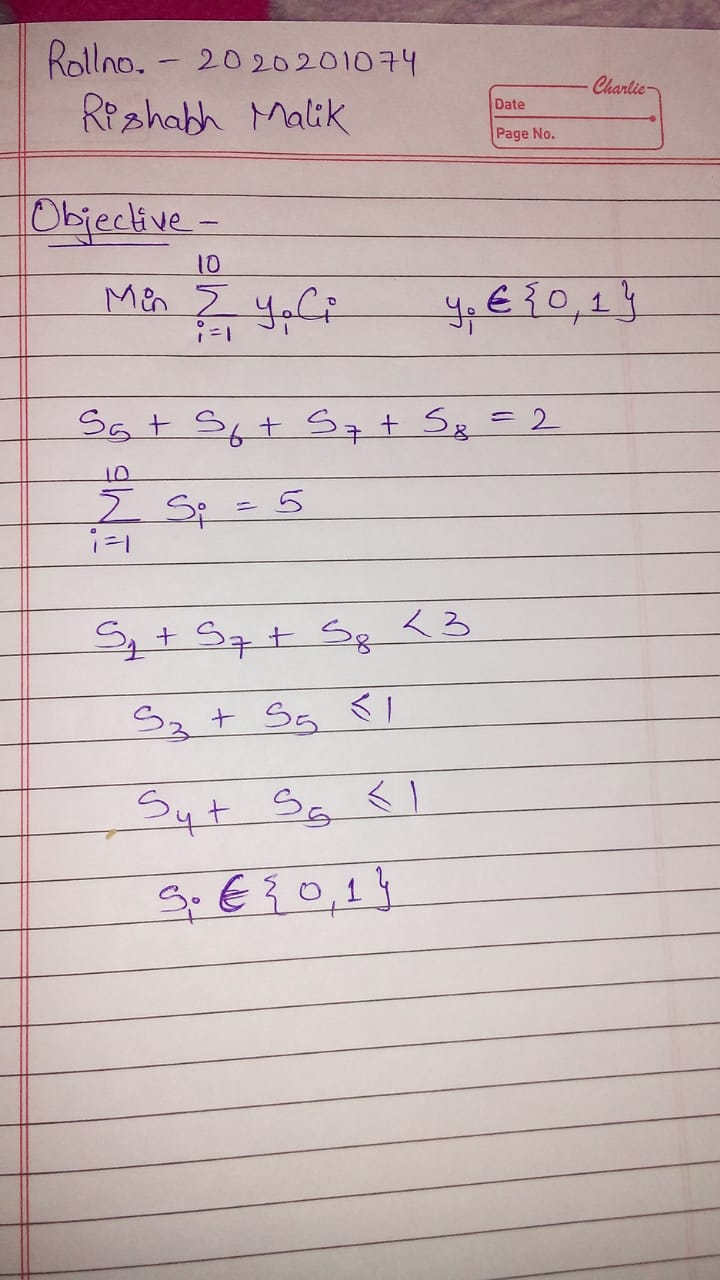 Rollno. - 2020201074
Rishabh Malik
Charlie
Date
Page No.
Objective -
10
Min Σ yᵢCᵢ yᵢ ∈ {0,1}
i=1
S₅ + S₆ + S₇ + S₈ = 2
10
Σ Sᵢ = 5
i=1
S₁ + S₇ + S₈ < 3
S₃ + S₅ ≤ 1
S₄ + S₅ ≤ 1
Sᵢ ∈ {0,1}